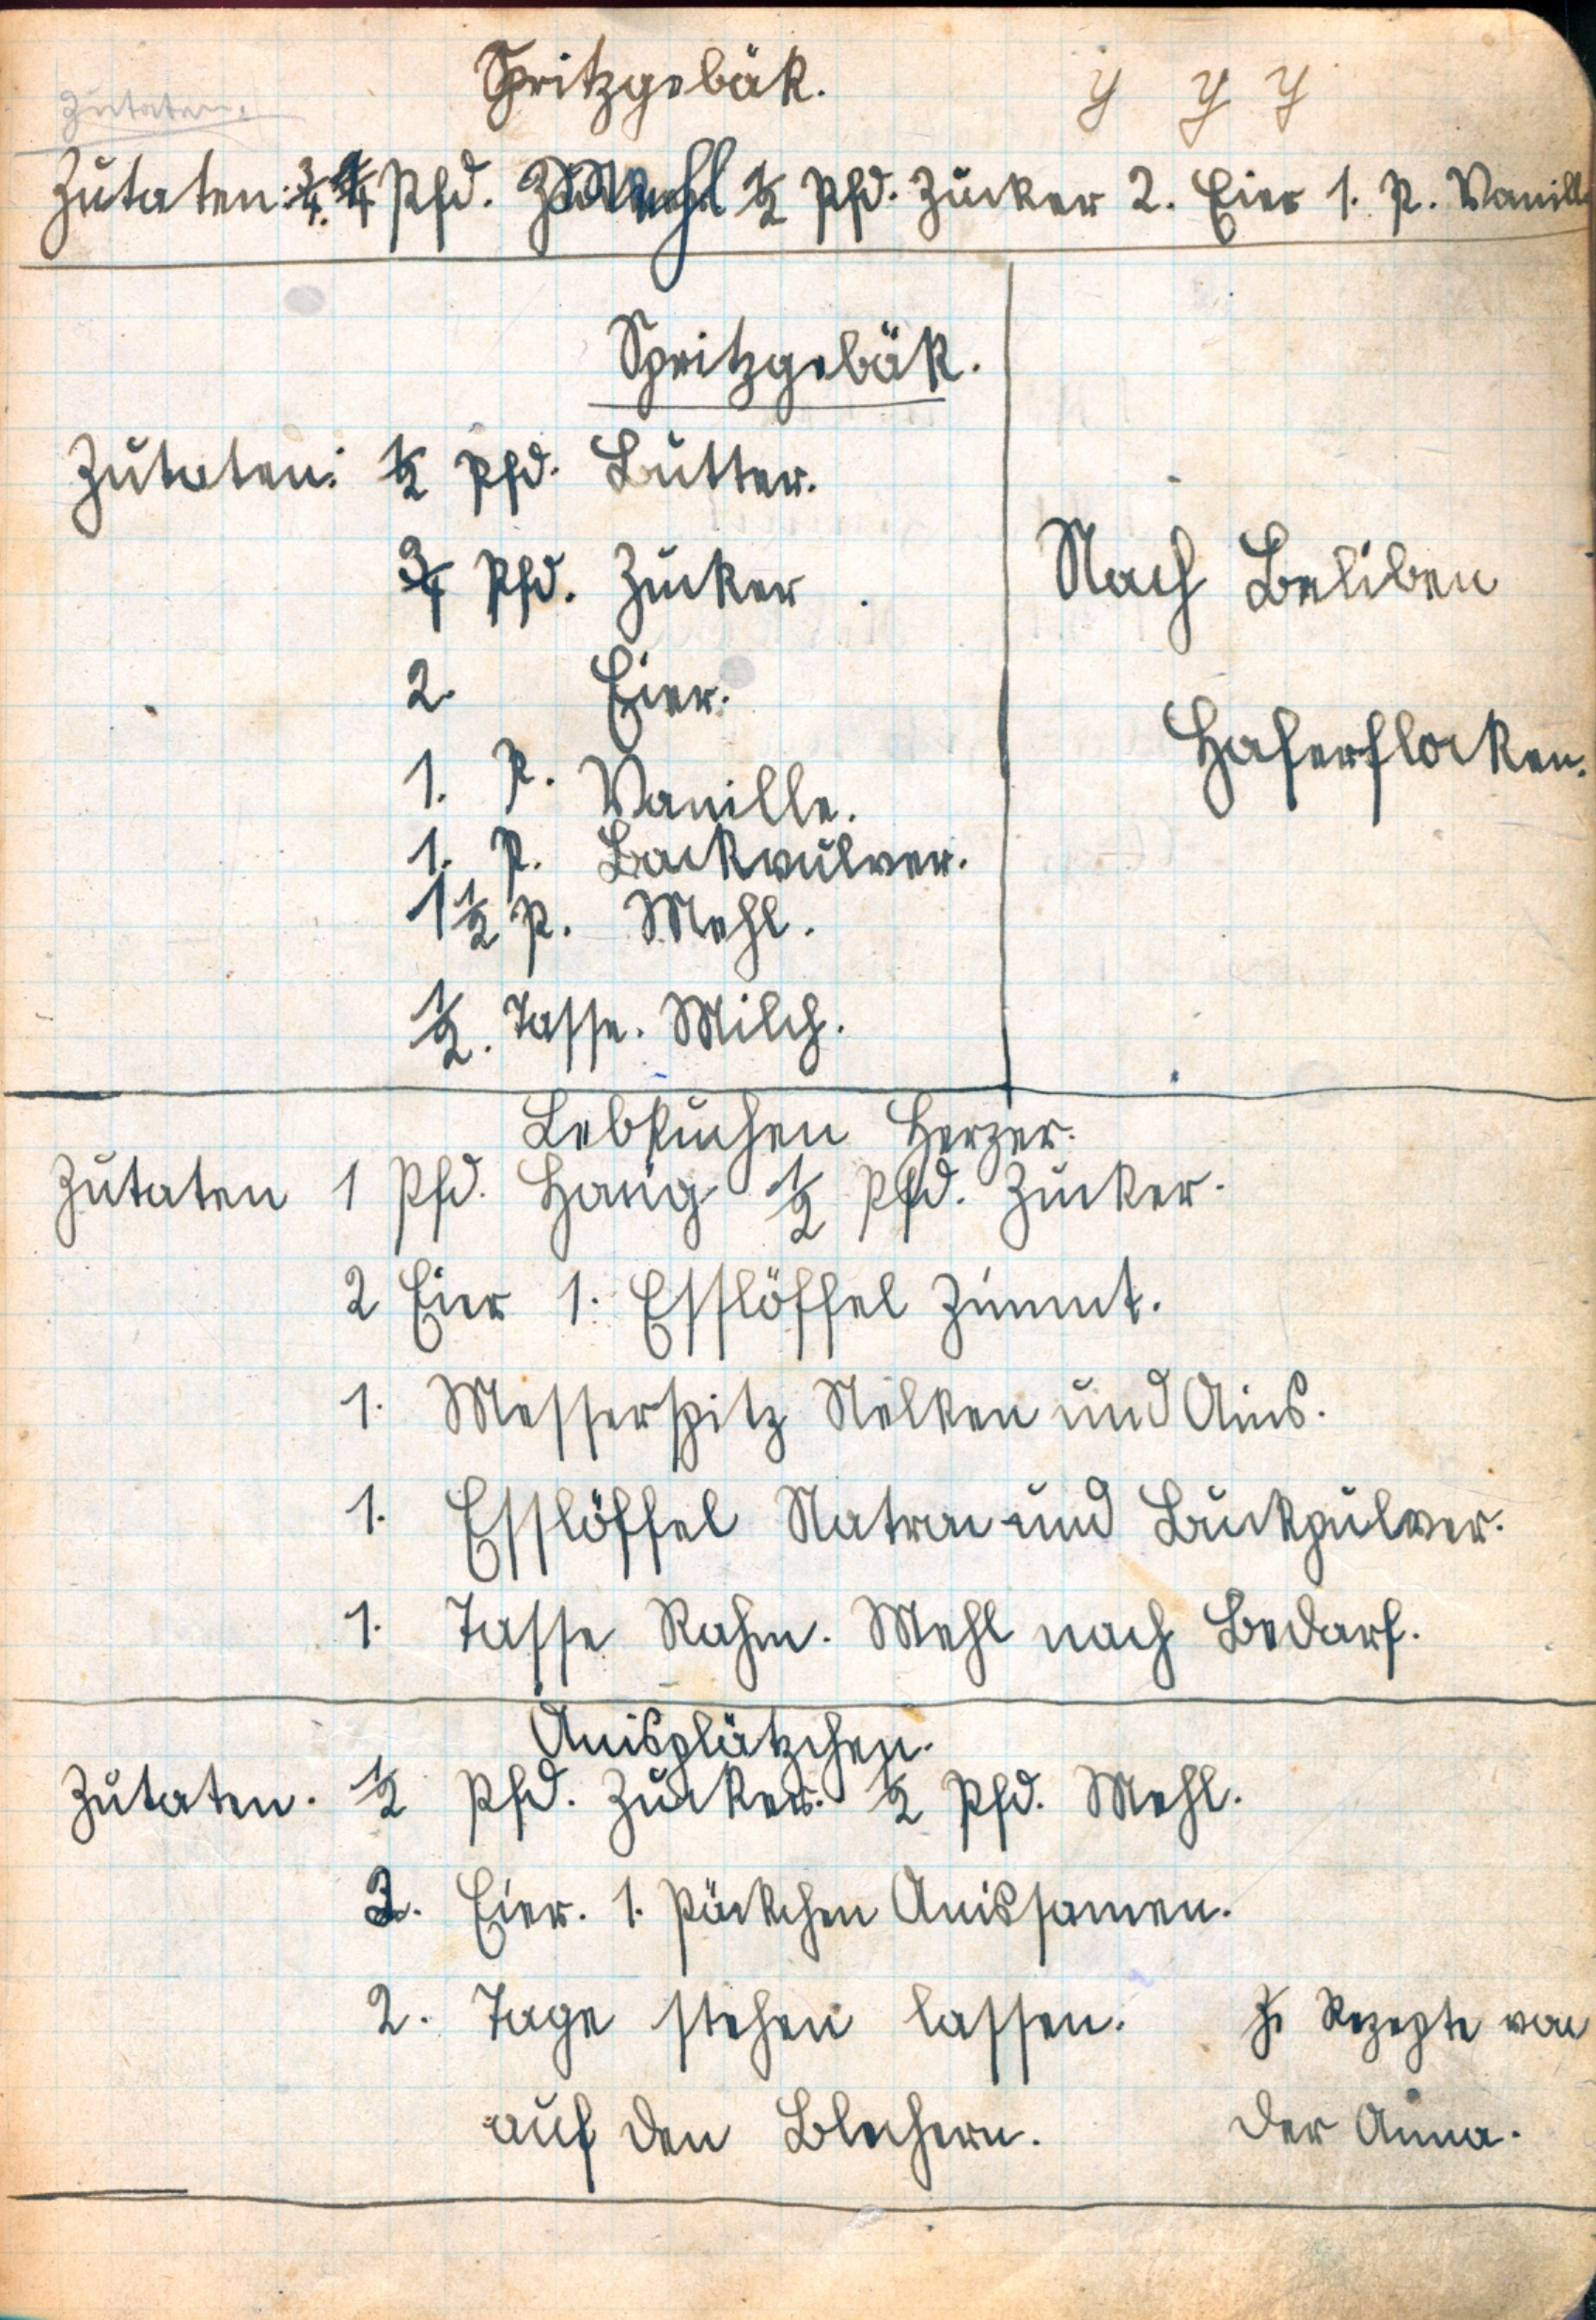 Spritzgebäk. y y y
Zutaten
Zutaten: 3/4 Pfd. Mehl 1/2 Pfd. Zucker 2. Eier 1. P. Vanill
Spritzgebäk.
Zutaten: 1/2 Pfd. Butter.
3/4 Pfd. Zucker.
2. Eier.
1. P. Vanille.
1. P. Backpulver.
1 1/2 P. Mehl.
1/2. Tasse. Milch.
Nach Beliben
Haferflocken.
Lebkuchen Herzer.
Zutaten 1 Pfd. Hanig 1/2 Pfd. Zucker.
2 Eier 1. Esslöffel Zimmt.
1. Messerspitz Nelken und Anis.
1. Esslöffel Natron und Backpulver.
1. Tasse Rahm. Mehl nach Bedarf.
Anisplätzchen.
Zutaten. 1/2 Pfd. Zucker. 1/2 Pfd. Mehl.
3. Eier. 1. Päckchen Anissamen.
2. Tage stehen lassen.
auf den Blechern.
Rezepte von
der Anna.